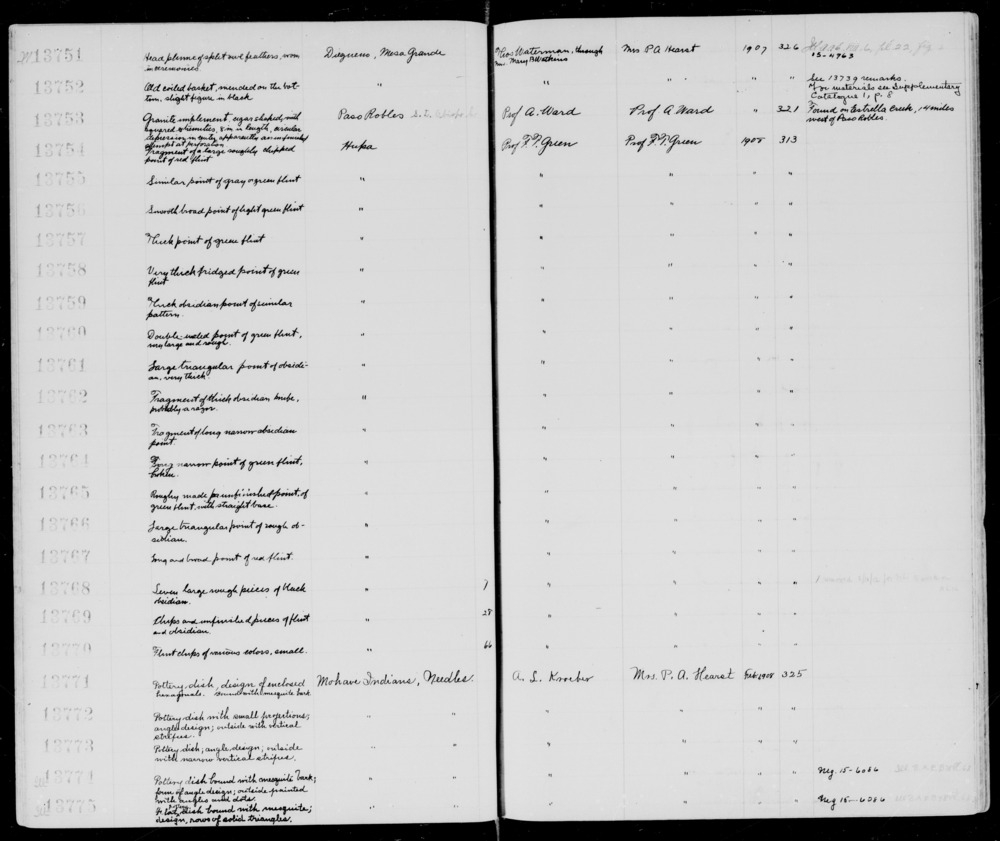 13751 Head plume of split owl feathers, worn Diegueno, Mesa Grande Thos Waterman, through Mrs P. A. Hearst 1907 326
in ceremonies. Mrs. Mary B Watkins 15-4963
13752 Old coiled basket, mended on the bot- " " " " " See 13739 remarks.
tom, slight figure in black For materials see Supplementary
Catalogue 1, p. 8
13753 Granite implement, cigar shaped, with Paso Robles Prof A. Ward Prof A. Ward " 321 Found on Estrella Creek, 14 miles
squared extremities, 8 in in length, circular west of Paso Robles.
depression in only apparently an unfinished
attempt at perforation
13754 Fragment of a large roughly chipped Hupa Prof F. T. Green Prof F. T. Green 1908 313
point of red flint
13755 Similar point of gray-green flint " " " " "
13756 Smooth broad point of light green flint " " " " "
13757 Thick point of green flint " " " " "
13758 Very thick ridged point of green " " " " "
flint
13759 Thick obsidian point of similar " " " " "
pattern.
13760 Double-ended point of green flint, " " " " "
very large and rough.
13761 Large triangular point of obsidi- " " " " "
an, very thick.
13762 Fragment of thick obsidian knife, " " " " "
probably a razor.
13763 Fragment of long narrow obsidian " " " " "
point.
13764 Long narrow point of green flint, " " " " "
broken.
13765 Roughly made unfinished point, of " " " " "
green flint, with straight base.
13766 Large triangular point of rough ob- " " " " "
sidian.
13767 Long and broad point of red flint. " " " " "
13768 Seven large rough pieces of black " 7 " " " "
obsidian.
13769 Chips and unfinished pieces of flint " 28 " " " "
and obsidian.
13770 Flint chips of various colors, small. " 66 " " " "
13771 Pottery dish, design of enclosed Mohave Indians, Needles. A. L. Kroeber Mrs. P. A. Hearst Feb. 1908 325
hexagonals. bound with mesquite bark
13772 Pottery dish with small projections; " " " " " "
angle design; outside with vertical
stripes.
13773 Pottery dish; angle design; outside " " " " " "
with narrow vertical stripes.
13774 Pottery dish bound with mesquite bark; " " " " " " Neg. 15-6086
form of angle design; outside painted
with angles and dots.
13775 Pottery dish bound with mesquite; " " " " " " Neg 15-6086
design, rows of solid triangles.